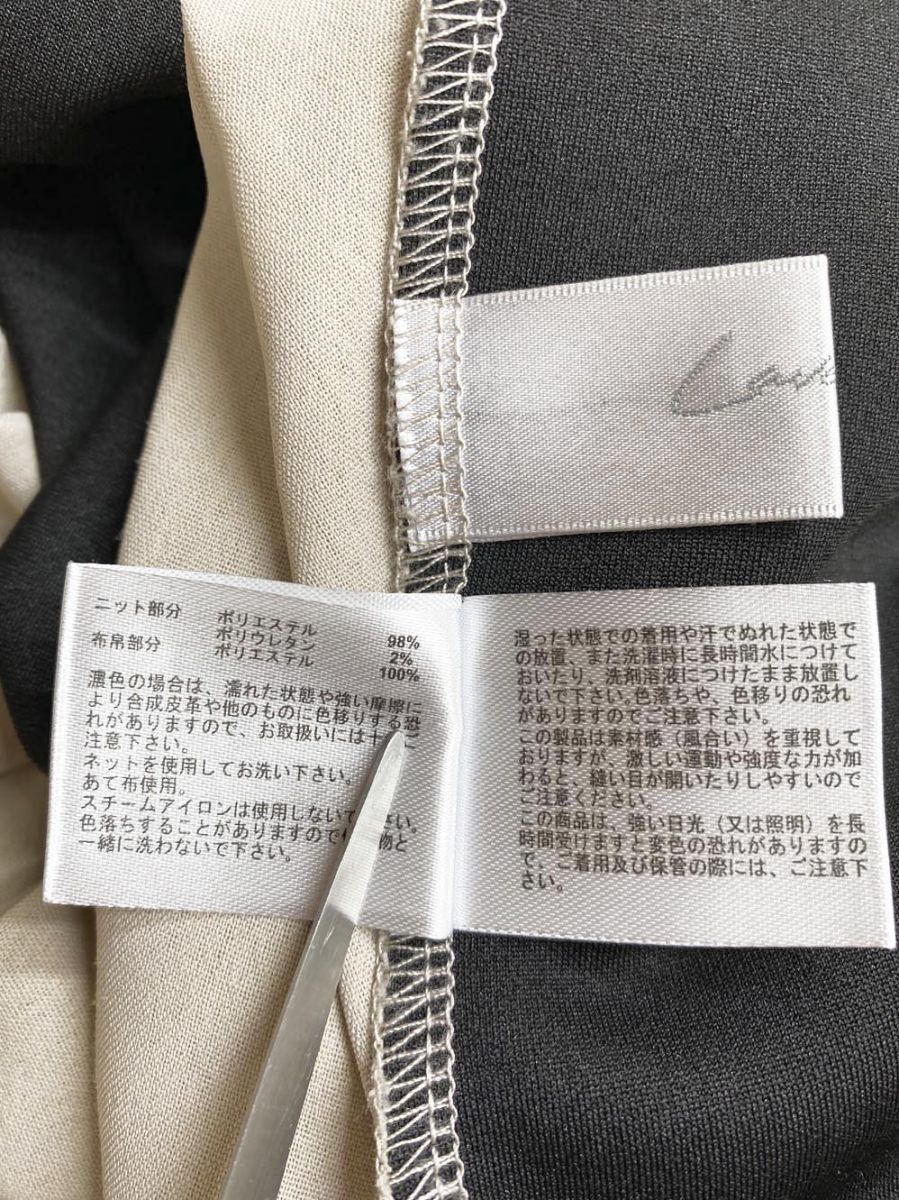 ニット部分 ポリエステル 98%
ポリウレタン 2%
布帛部分 ポリエステル 100%
濃色の場合は、濡れた状態や強い摩擦に
より合成皮革や他のものに色移りする恐
れがありますので、お取扱いには十
注意下さい。
ネットを使用してお洗い下さい。
あて布使用。
スチームアイロンは使用しないで さい。
色落ちすることがありますので 物と
一緒に洗わないで下さい。
湿った状態での着用や汗でぬれた状態で
の放置、また洗濯時に長時間水につけて
おいたり、洗剤溶液につけたまま放置し
ないで下さい。色落ちや、色移りの恐れ
がありますのでご注意下さい。
この製品は素材感（風合い）を重視して
おりますが、激しい運動や強度な力が加
わると、縫い目が開いたりしやすいので
ご注意ください。
この商品は、強い日光（又は照明）を長
時間受けますと変色の恐れがありますの
で、ご着用及び保管の際には、ご注意下
さい。